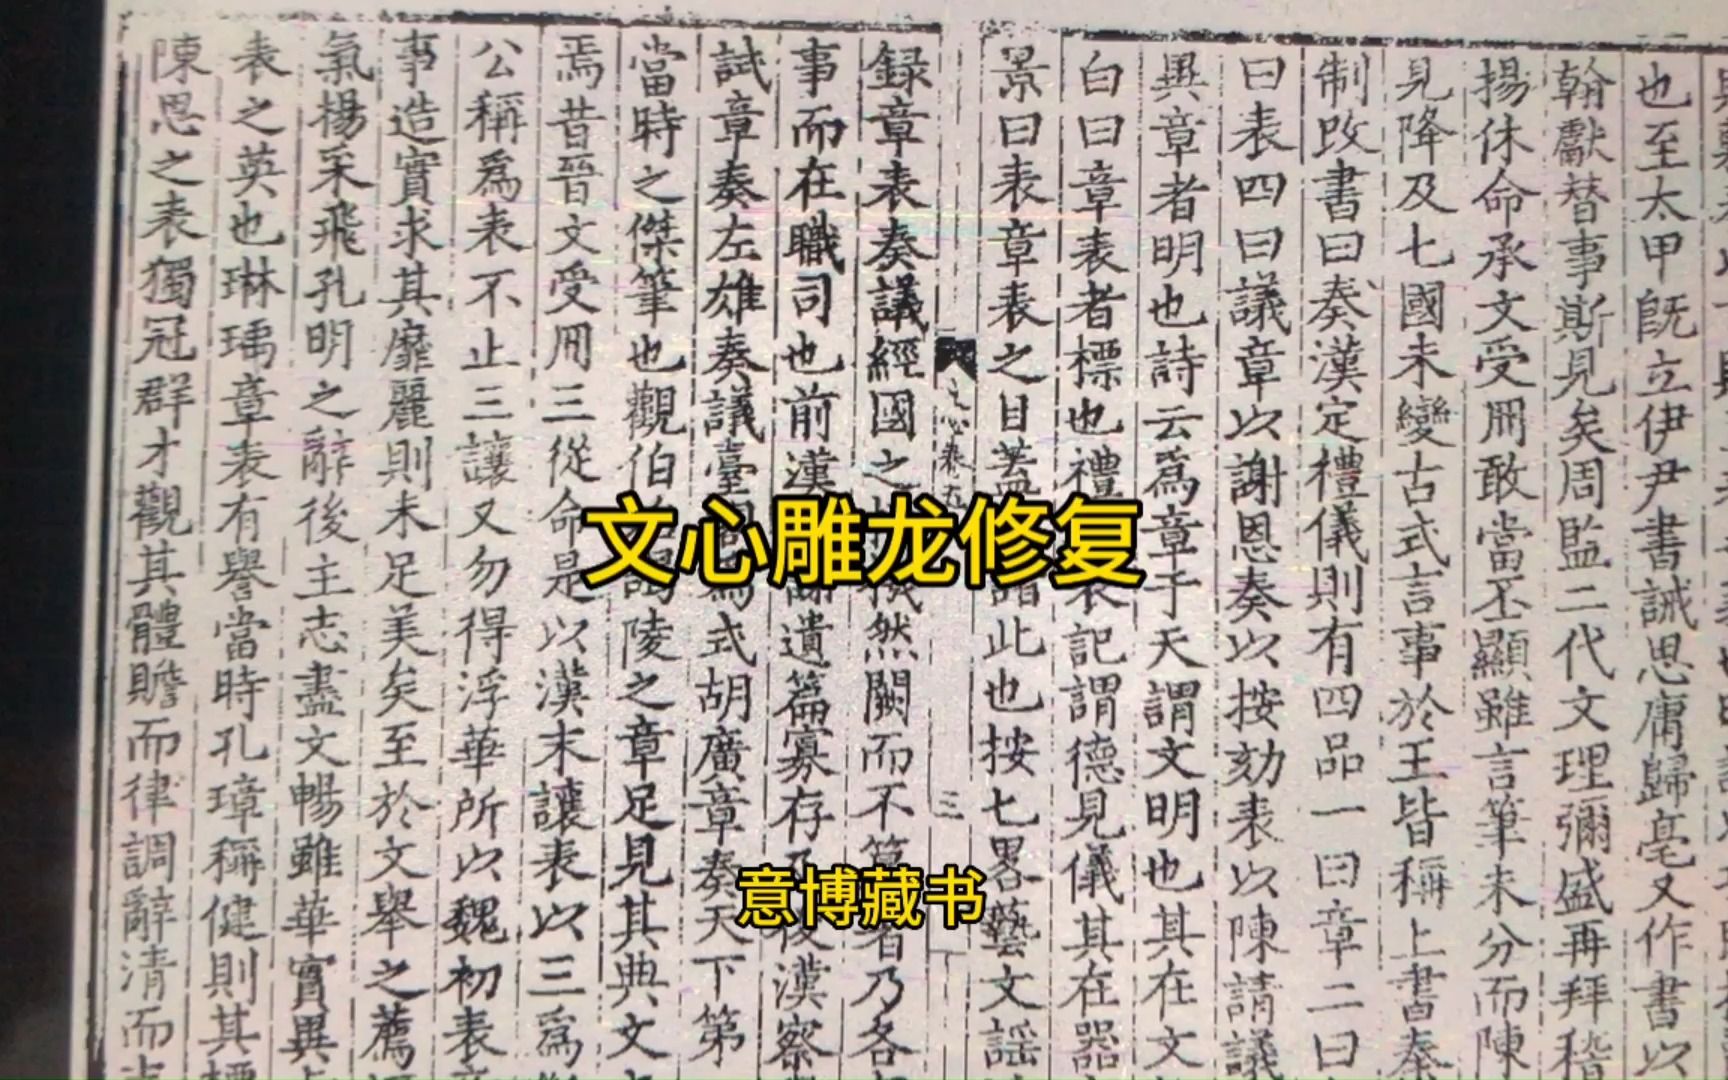 也至太甲旣立伊尹書誡思庸歸亳又作書以
翰獻替事斯見矣周監二代文理彌盛再拜稽
揚休命承文受冊敢當丕顯雖言筆未分而陳
見降及七國未變古式言事於王皆稱上書秦
制改書曰奏漢定禮儀則有四品一曰章二曰
曰表四曰議章以謝恩奏以按劾表以陳請議
異章者明也詩云爲章于天謂文明也其在文
白曰章表者標也禮表記謂德見儀其在器
景曰表章表之目蓋此也按七畧藝文謡
文心卷五
三
録章表奏議經國之然闕而不者乃各
事而在職司也前漢遺篇寡存後漢察
試章奏左雄奏議臺爲式胡廣章奏天下第
當時之傑筆也觀伯陵之章足見其典文
焉昔晉文受冊三從命是以漢末讓表以三爲
公稱爲表不止三讓又勿得浮華所以魏初表
事造實求其靡麗則未足美矣至於文舉之薦
氣楊采飛孔明之辭後主志盡文暢雖華實異
表之英也琳瑀章表有譽當時孔璋稱健則其
陳思之表獨冠群才觀其體贍而律調辭清而
文心雕龙修复
意博藏书